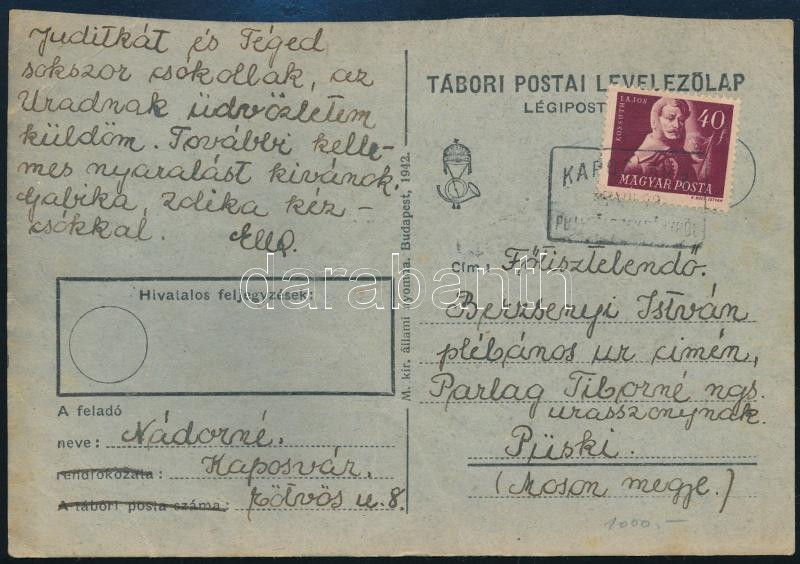 Juditkát és Téged
sokszor csókollak, az
Uradnak üdvözletem
küldöm. További kelle-
mes nyaralást kivánok,
Gabika, Zdika kéz-
csókkal.
Ella.
TÁBORI POSTAI LEVELEZŐLAP
LÉGIPOST
KOSSUTH LAJOS
40 f
MAGYAR POSTA
KAPOS
M. kir. állami nyomda. Budapest, 1942.
darabanth
Hivatalos feljegyzések:
A feladó
neve: Nádorné.
rendfokozata: Kaposvár.
A tábori posta száma: Eötvös u. 8.
Cím: Főtisztelendő.
Berzsenyi István
plébános ur cimén,
Parlag Tiborné ngs.
urasszonynak.
Püski.
(Moson megye.)
1000,-